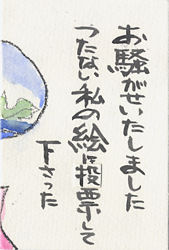 お騒がせいたしました
つたない私の絵に投票して
下さった